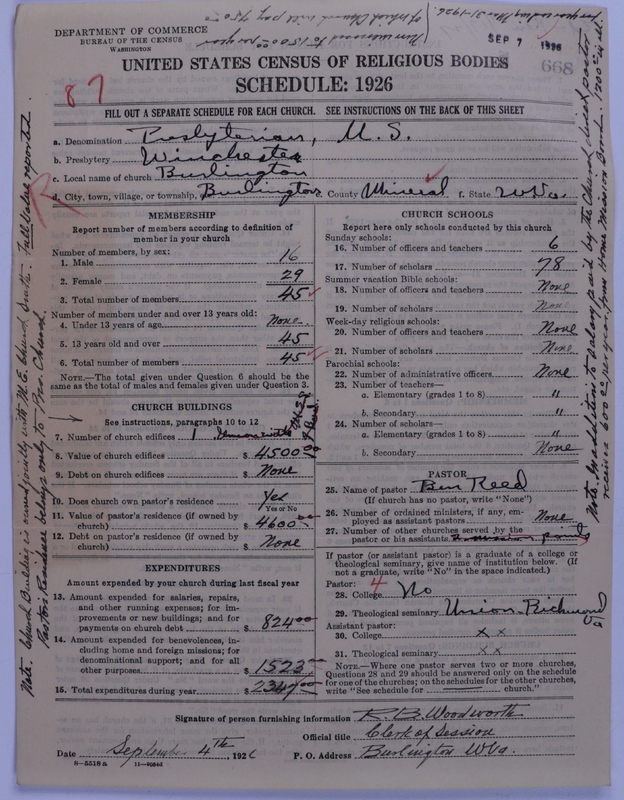 DEPARTMENT OF COMMERCE
BUREAU OF THE CENSUS
WASHINGTON
Now increased to 1500.00 per year
of which Church will pay 750.00
for year ending Mar 31-1926.
SEP 7 1926
668
87
UNITED STATES CENSUS OF RELIGIOUS BODIES
SCHEDULE: 1926
FILL OUT A SEPARATE SCHEDULE FOR EACH CHURCH. SEE INSTRUCTIONS ON THE BACK OF THIS SHEET
a. Denomination Presbyterian, U.S.
b. Presbytery Winchester
c. Local name of church Burlington
d. City, town, village, or township, Burlington e. County Mineral f. State W.Va.
MEMBERSHIP
Report number of members according to definition of member in your church
Number of members, by sex:
1. Male 16
2. Female 29
3. Total number of members 45
Number of members under and over 13 years old:
4. Under 13 years of age None
5. 13 years old and over 45
6. Total number of members 45
NOTE.—The total given under Question 6 should be the
same as the total of males and females given under Question 3.
CHURCH BUILDINGS
See instructions, paragraphs 10 to 12
7. Number of church edifices 1 Union with M.E.
8. Value of church edifices $ 4500.00
9. Debt on church edifices $ None
10. Does church own pastor's residence Yes
Yes or No
11. Value of pastor's residence (if owned by
church) $ 4600.00
12. Debt on pastor's residence (if owned by
church) $ None
EXPENDITURES
Amount expended by your church during last fiscal year
13. Amount expended for salaries, repairs,
and other running expenses; for im-
provements or new buildings; and for
payments on church debt $ 824.00
14. Amount expended for benevolences, in-
cluding home and foreign missions; for
denominational support; and for all
other purposes $ 1523.00
15. Total expenditures during year $ 2347.00
CHURCH SCHOOLS
Report here only schools conducted by this church
Sunday schools:
16. Number of officers and teachers 6
17. Number of scholars 78
Summer vacation Bible schools:
18. Number of officers and teachers None
19. Number of scholars None
Week-day religious schools:
20. Number of officers and teachers None
21. Number of scholars None
Parochial schools:
22. Number of administrative officers None
23. Number of teachers—
a. Elementary (grades 1 to 8) "
b. Secondary "
24. Number of scholars—
a. Elementary (grades 1 to 8) "
b. Secondary None
PASTOR
25. Name of pastor Ben Reed
(If church has no pastor, write "None")
26. Number of ordained ministers, if any, em-
ployed as assistant pastors None
27. Number of other churches served by the
pastor or his assistants
If pastor (or assistant pastor) is a graduate of a college or
theological seminary, give name of institution below. (If
not a graduate, write "No" in the space indicated.)
Pastor: 4
28. College No
29. Theological seminary Union. Richmond
Assistant pastor:
30. College x x
31. Theological seminary x x
NOTE.—Where one pastor serves two or more churches,
Questions 28 and 29 should be answered only on the schedule
for one of the churches; on the schedules for the other churches,
write "See schedule for church."
Signature of person furnishing information R. B. Woodworth
Official title Clerk of Session
Date September 4th, 1926 P. O. Address Burlington W.Va.
8-5518a
Note. Church Building is owned jointly with M.E. Church, South. Full value reported.
Pastor's Residence belongs only to Pres. Church.
Note. In addition to salary paid by the Church direct, pastor
receives 600.00 per year from Home Mission Board. 1200.00 in all.